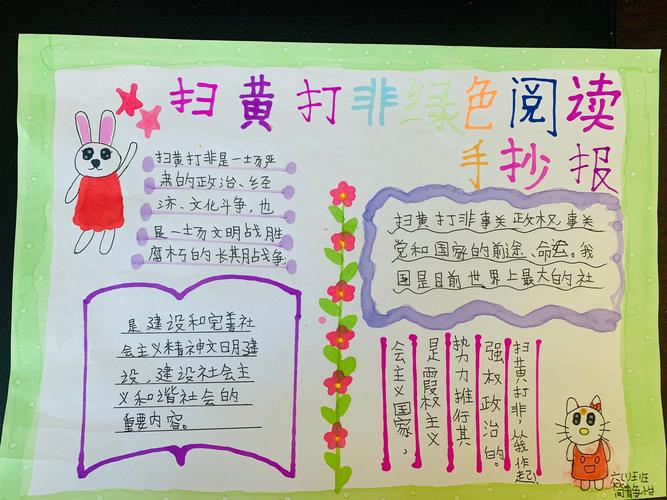 扫黄打非绿色阅读
手抄报
扫黄打非是一场严
肃的政治、经
济、文化斗争,也
是一场文明战胜
腐朽的长期战争
扫黄打非事关政权,事关
党和国家的前途、命运。我
国是目前世界上最大的社
会主义国家,
是霸权主义
势力推行其
强权政治的。
扫黄打非,
是建设和完善社
会主义精神文明建
设,建设社会主
义和谐社会的
重要内容。